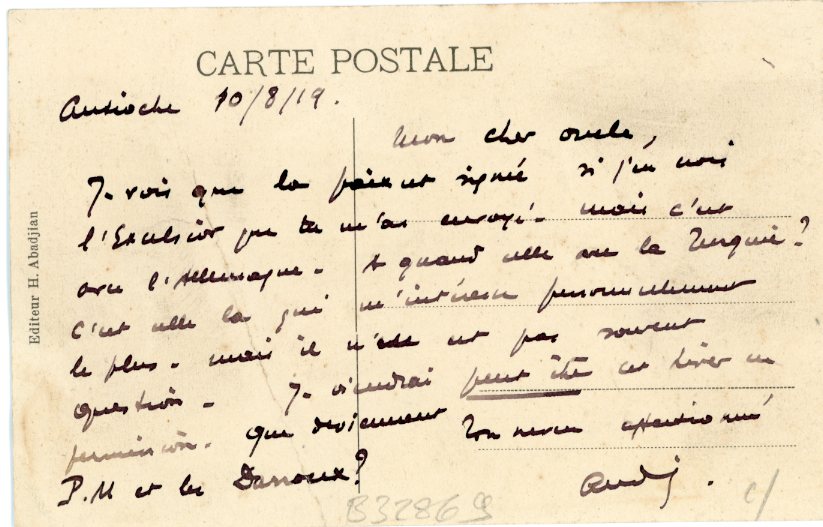 CARTE POSTALE
Antioche 10/8/19.
Mon cher oncle,
Je vois que la paix est signé si j'en crois
l'Excelsior que tu m'as envoyé. mais c'est
avec l'Allemagne. A quand celle avec la Turquie?
c'est celle la qui m'intéresse personnellement
le plus. mais il n'en est pas souvent
question. Je viendrai peut être cet hiver en
permission. que deviennent
Ton neveu affectionné
P.M et les Darroux?
André.
Editeur H. Abadjian
B32869